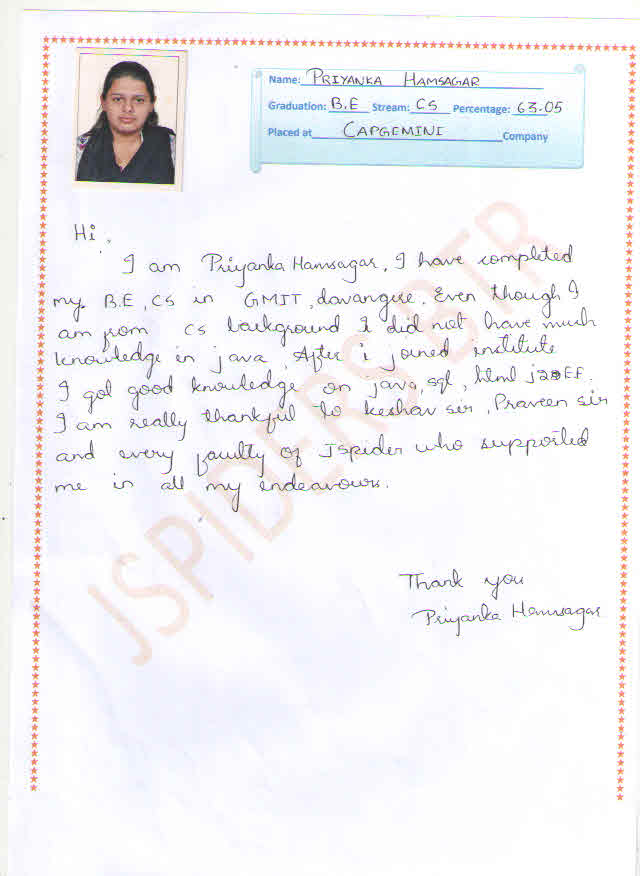 Name: PRIYANKA HAMSAGAR
Graduation: B.E Stream: CS Percentage: 63.05
Placed at CAPGEMINI Company
Hi,
I am Priyanka Hamsagar, I have completed
my B.E, CS in GMIT, davangere. Even though I
am from CS background I did not have much
knowledge in java, After i joined institute
I got good knowledge on java, sql, html j2EE.
I am really thankful to keshav sir, Praveen sir
and every faulty of Jspider who supported
me in all my endeavours.
Thank you
Priyanka Hamsagar
JSPIDERS BTR